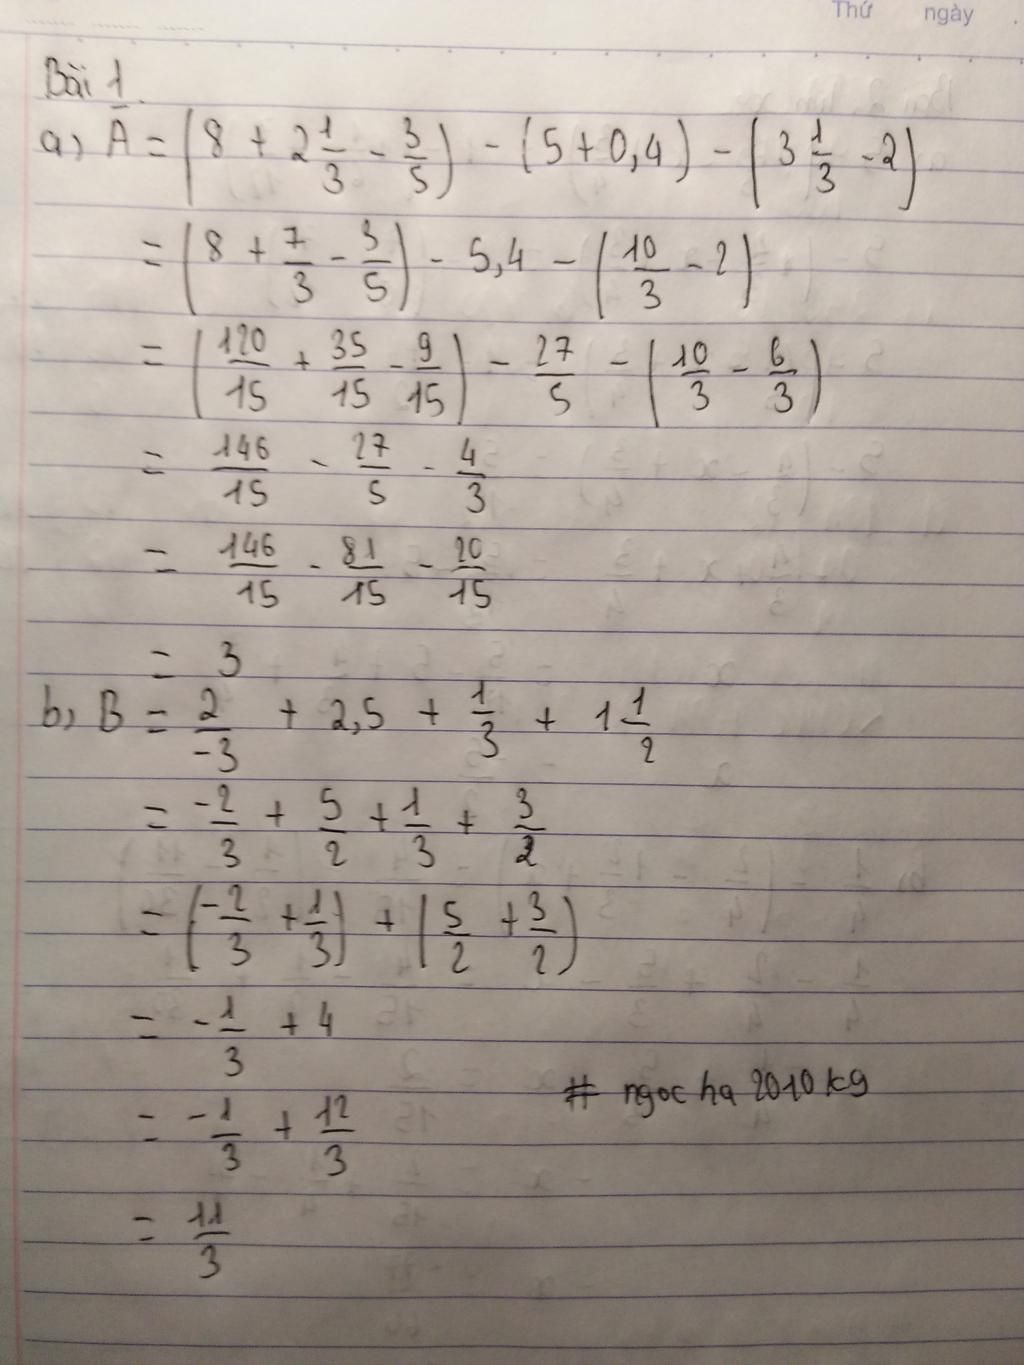 Thứ ngày
Bài 1
a, A = (8 + 2 1/3 - 3/5) - (5 + 0,4) - (3 1/3 - 2)
= (8 + 7/3 - 3/5) - 5,4 - (10/3 - 2)
= (120/15 + 35/15 - 9/15) - 27/5 - (10/3 - 6/3)
= 146/15 - 27/5 - 4/3
= 146/15 - 81/15 - 20/15
= 3
b, B = 2/-3 + 2,5 + 1/3 + 1 1/2
= -2/3 + 5/2 + 1/3 + 3/2
= (-2/3 + 1/3) + (5/2 + 3/2)
= -1/3 + 4
# ngoc ha 2010 kg
= -1/3 + 12/3
= 11/3